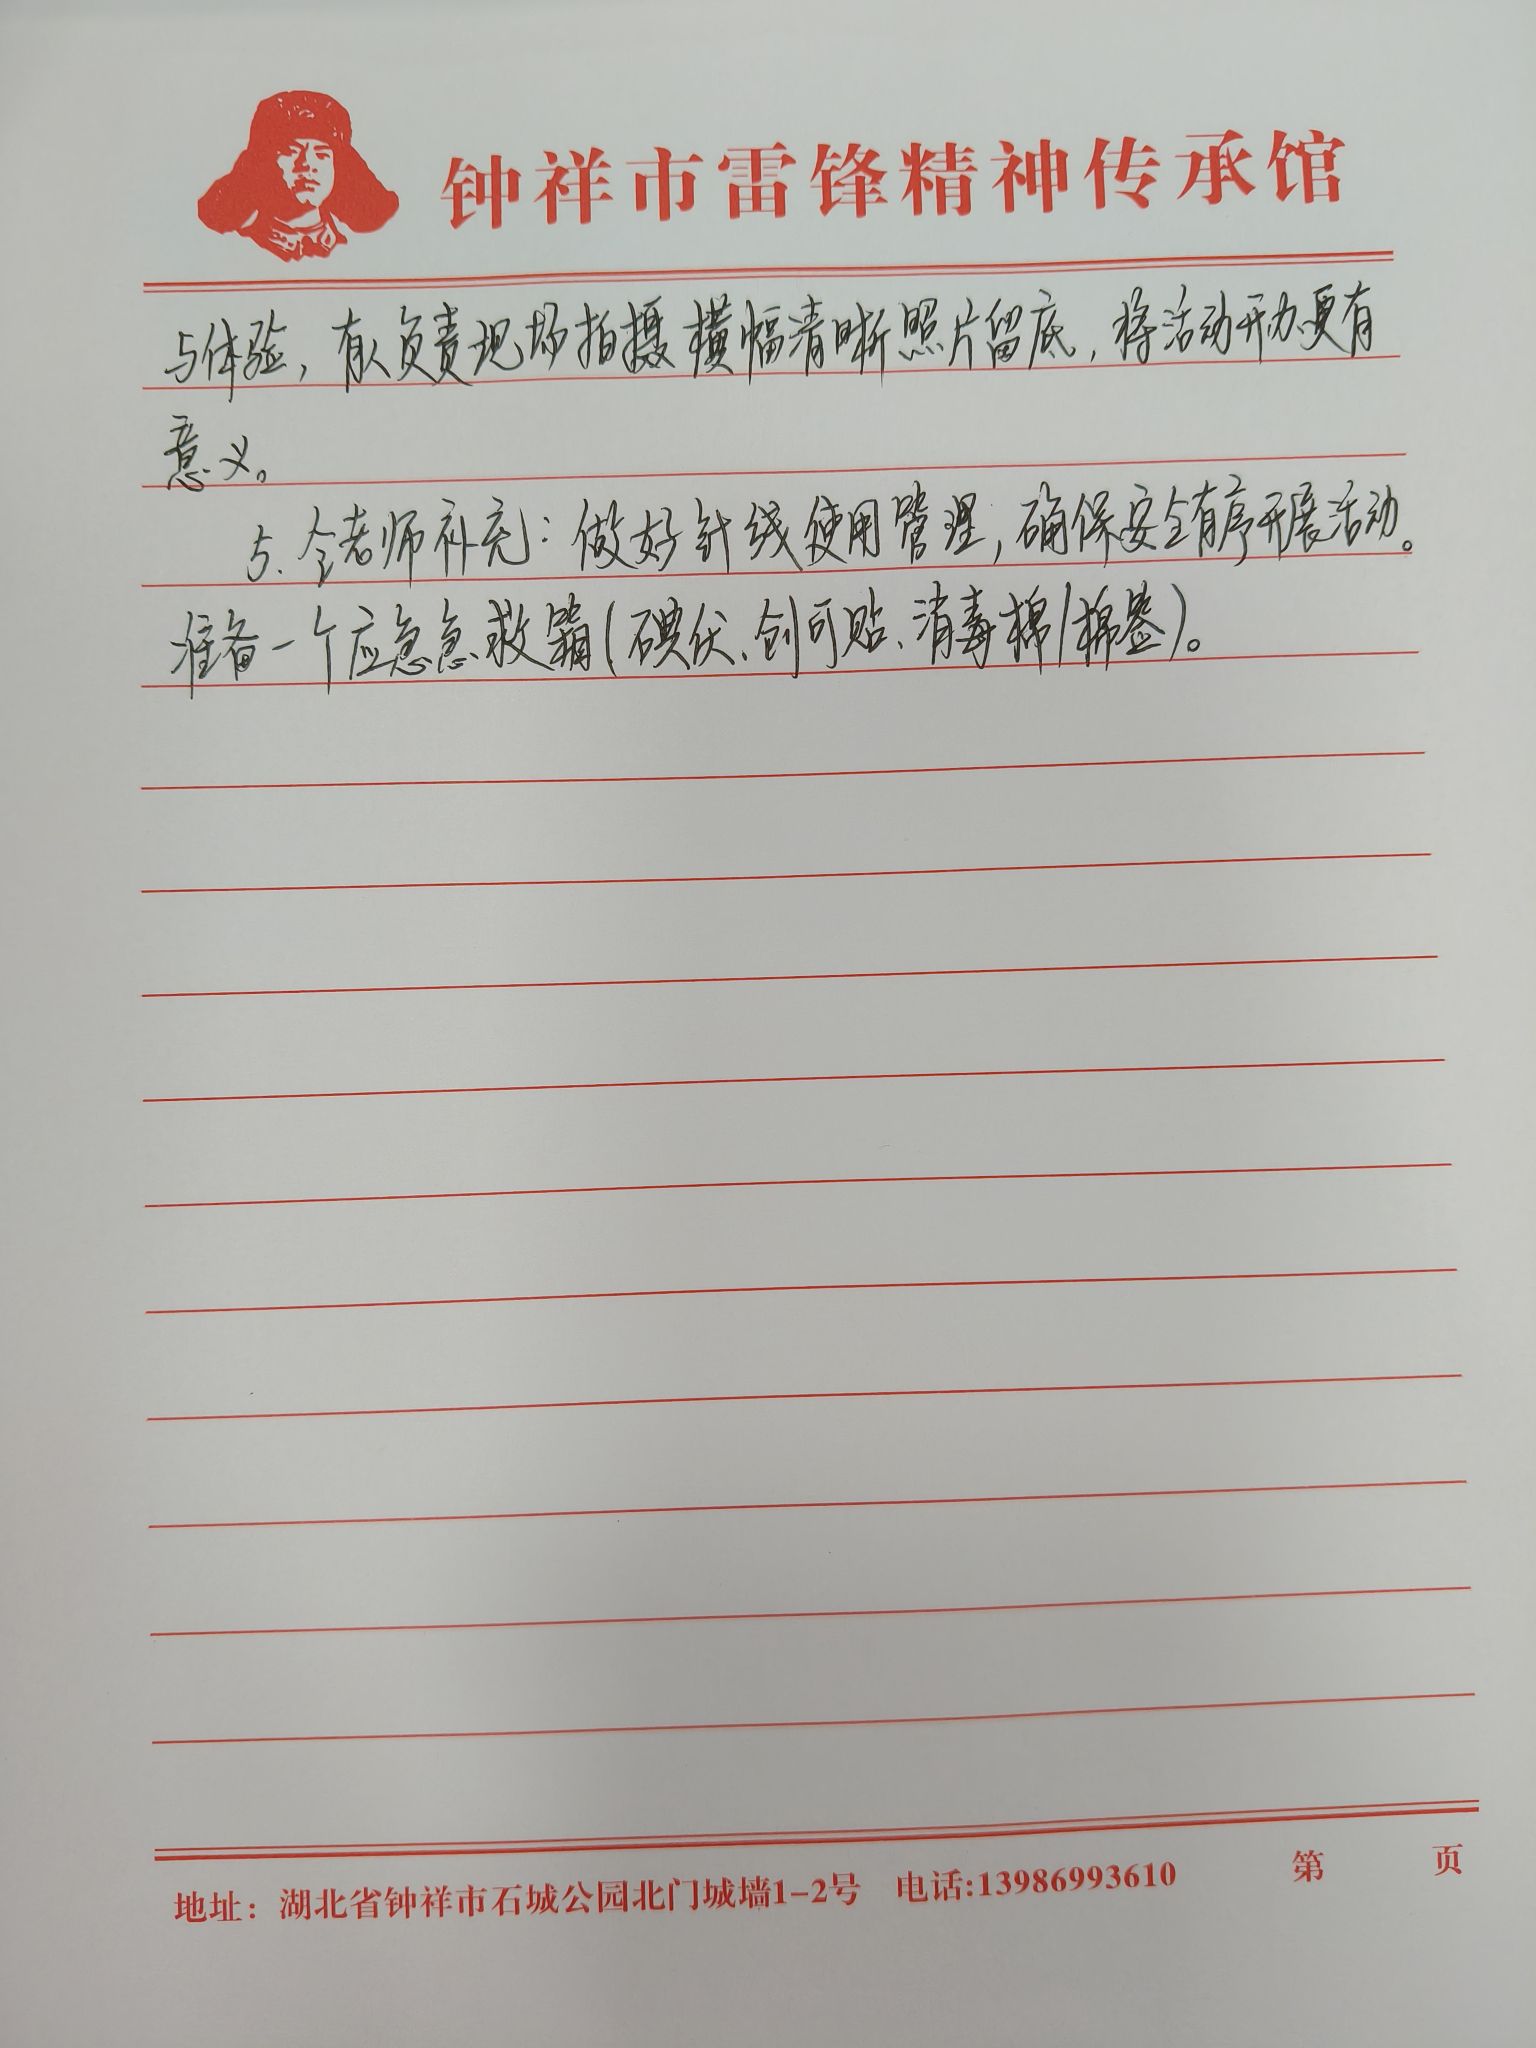 钟祥市雷锋精神传承馆
与体验，有人负责现场拍摄横幅清晰照片留底，将活动开办更有
意义。
5. 全老师补充：做好针线使用管理，确保安全有序开展活动。
准备一个应急急救箱(碘伏、创可贴、消毒棉/棉签)。
地址：湖北省钟祥市石城公园北门城墙1-2号 电话:13986993610 第 页